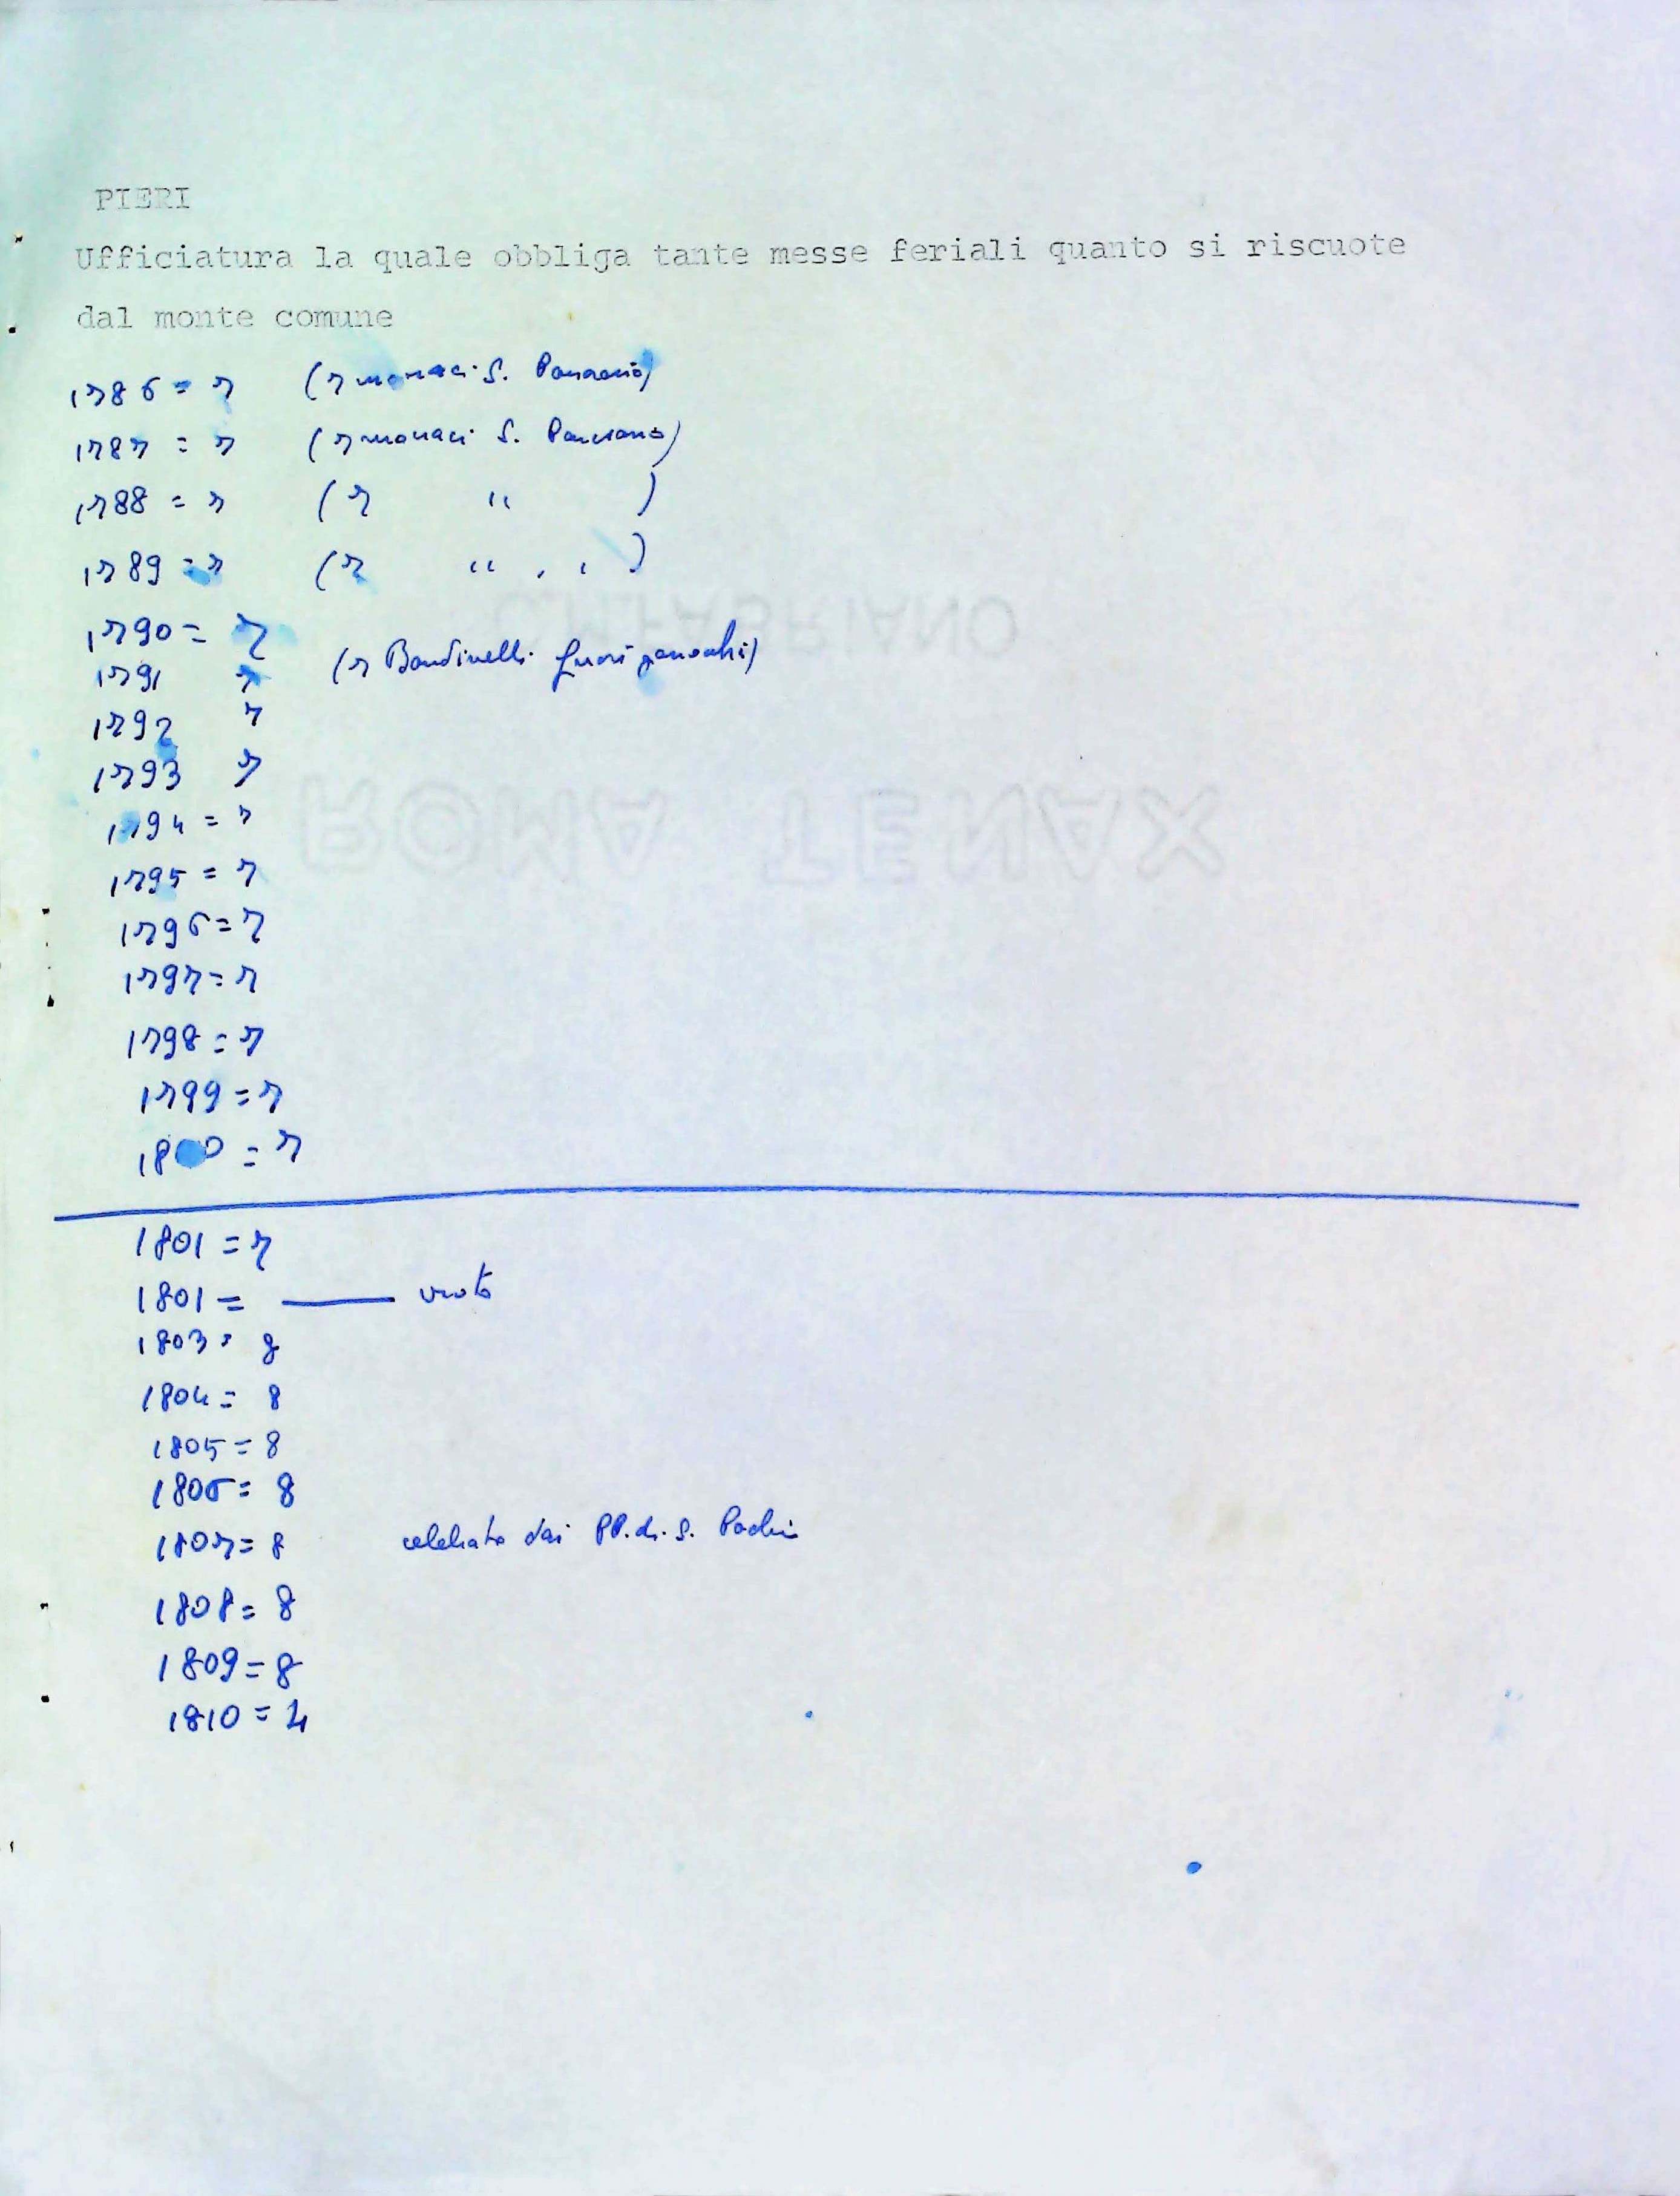 PIERI
Ufficiatura la quale obbliga tante messe feriali quanto si riscuote
dal monte comune
1786 = 7 (7 monaci S. Ponziano)
1787 = 7 (7 monaci S. Ponziano)
1788 = 7 (7 " )
1789 = 7 (7 " , , )
1790 = 7
1791 7 (7 Bandinelli fuori parrocchia)
1792 7
1793 7
1794 = 7
1795 = 7
1796 = 7
1797 = 7
1798 = 7
1799 = 7
1800 = 7
1801 = 7
1801 = ——— vuoto
1803 = 8
1804 = 8
1805 = 8
1806 = 8
1807 = 8 celebrate dai PP. di S.
1808 = 8
1809 = 8
1810 = 4
C.M.FABRIANO
ROMA TENAX